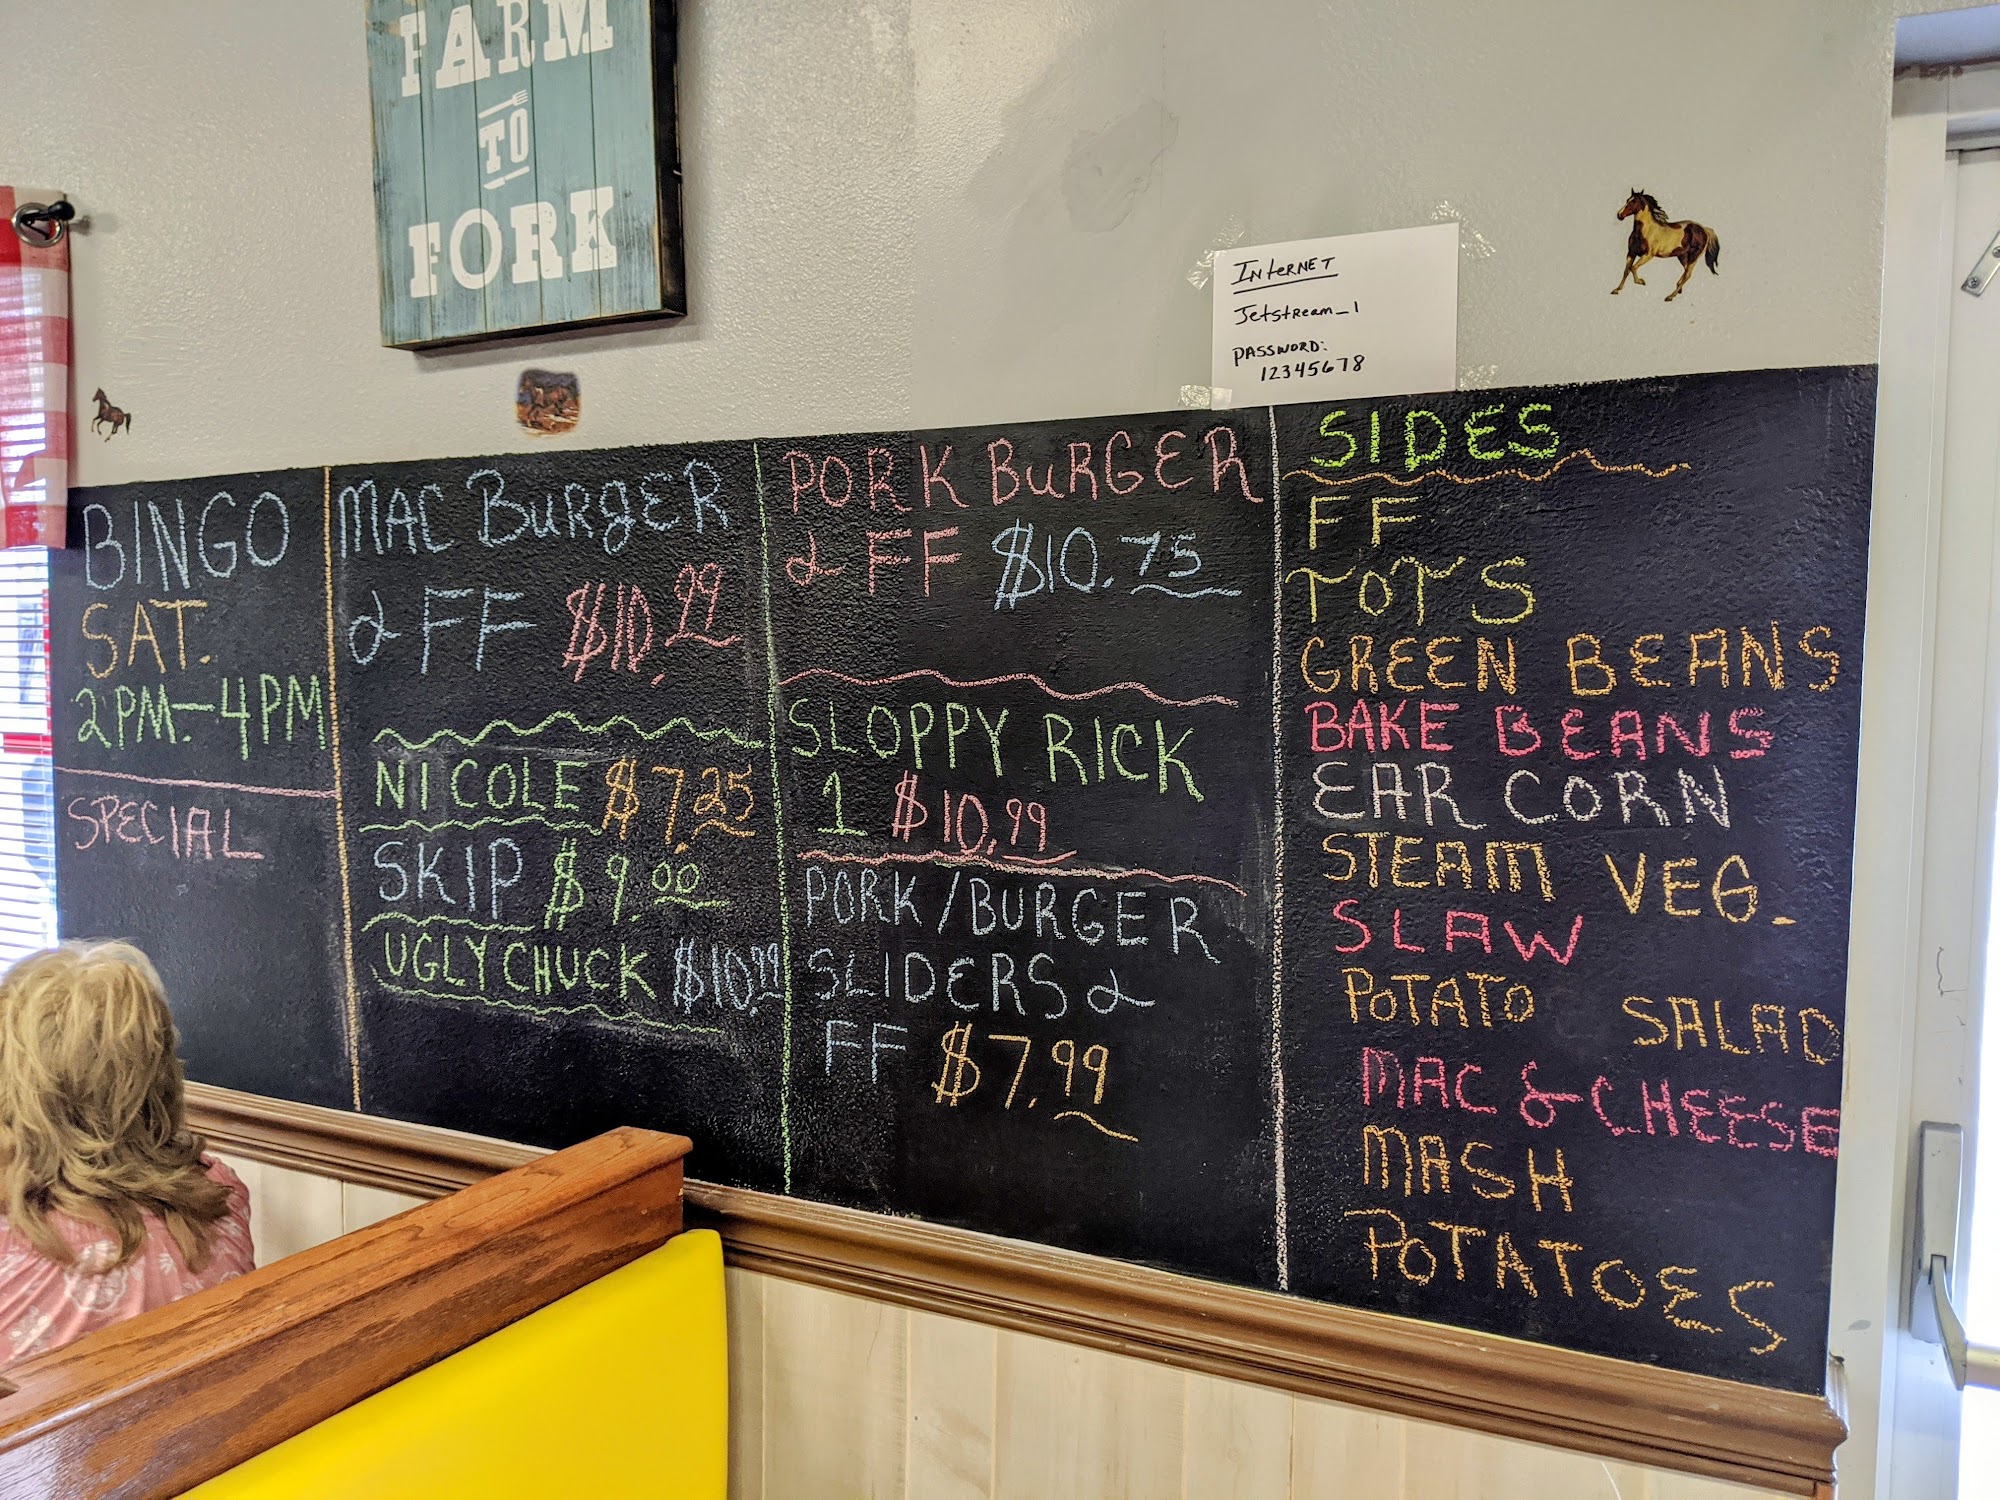 FARM
TO
FORK
INTERNET
Jetstream_1
PASSWORD:
12345678
BINGO
SAT.
2PM-4PM
SPECIAL
MAC BURGER
& FF $10.99
NICOLE $7.25
SKIP $9.00
UGLY CHUCK $10.99
PORK BURGER
& FF $10.75
SLOPPY RICK
1 $10.99
PORK/BURGER
SLIDERS &
FF $7.99
SIDES
FF
TOTS
GREEN BEANS
BAKE BEANS
EAR CORN
STEAM VEG.
SLAW
POTATO SALAD
MAC & CHEESE
MASH
POTATOES